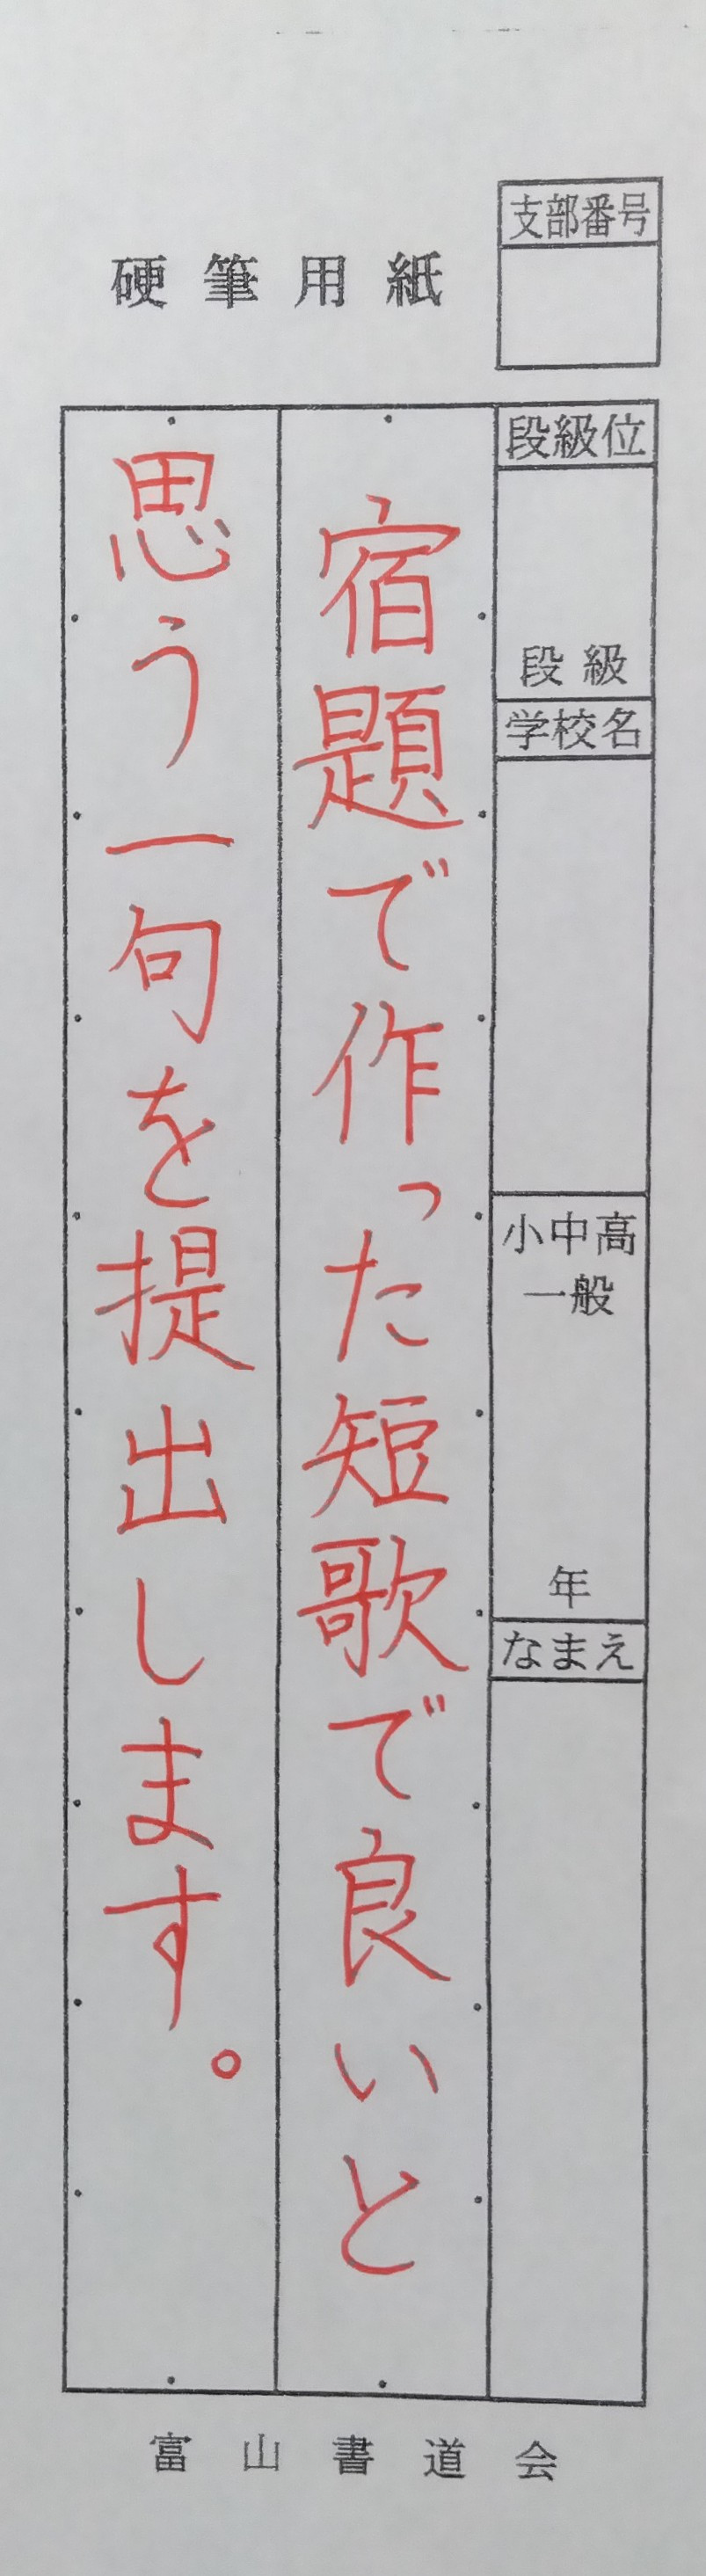 硬筆用紙
支部番号
段級位
段級
学校名
小中高
一般
年
なまえ
宿題で作った短歌で良いと
思う一句を提出します。
富山書道会